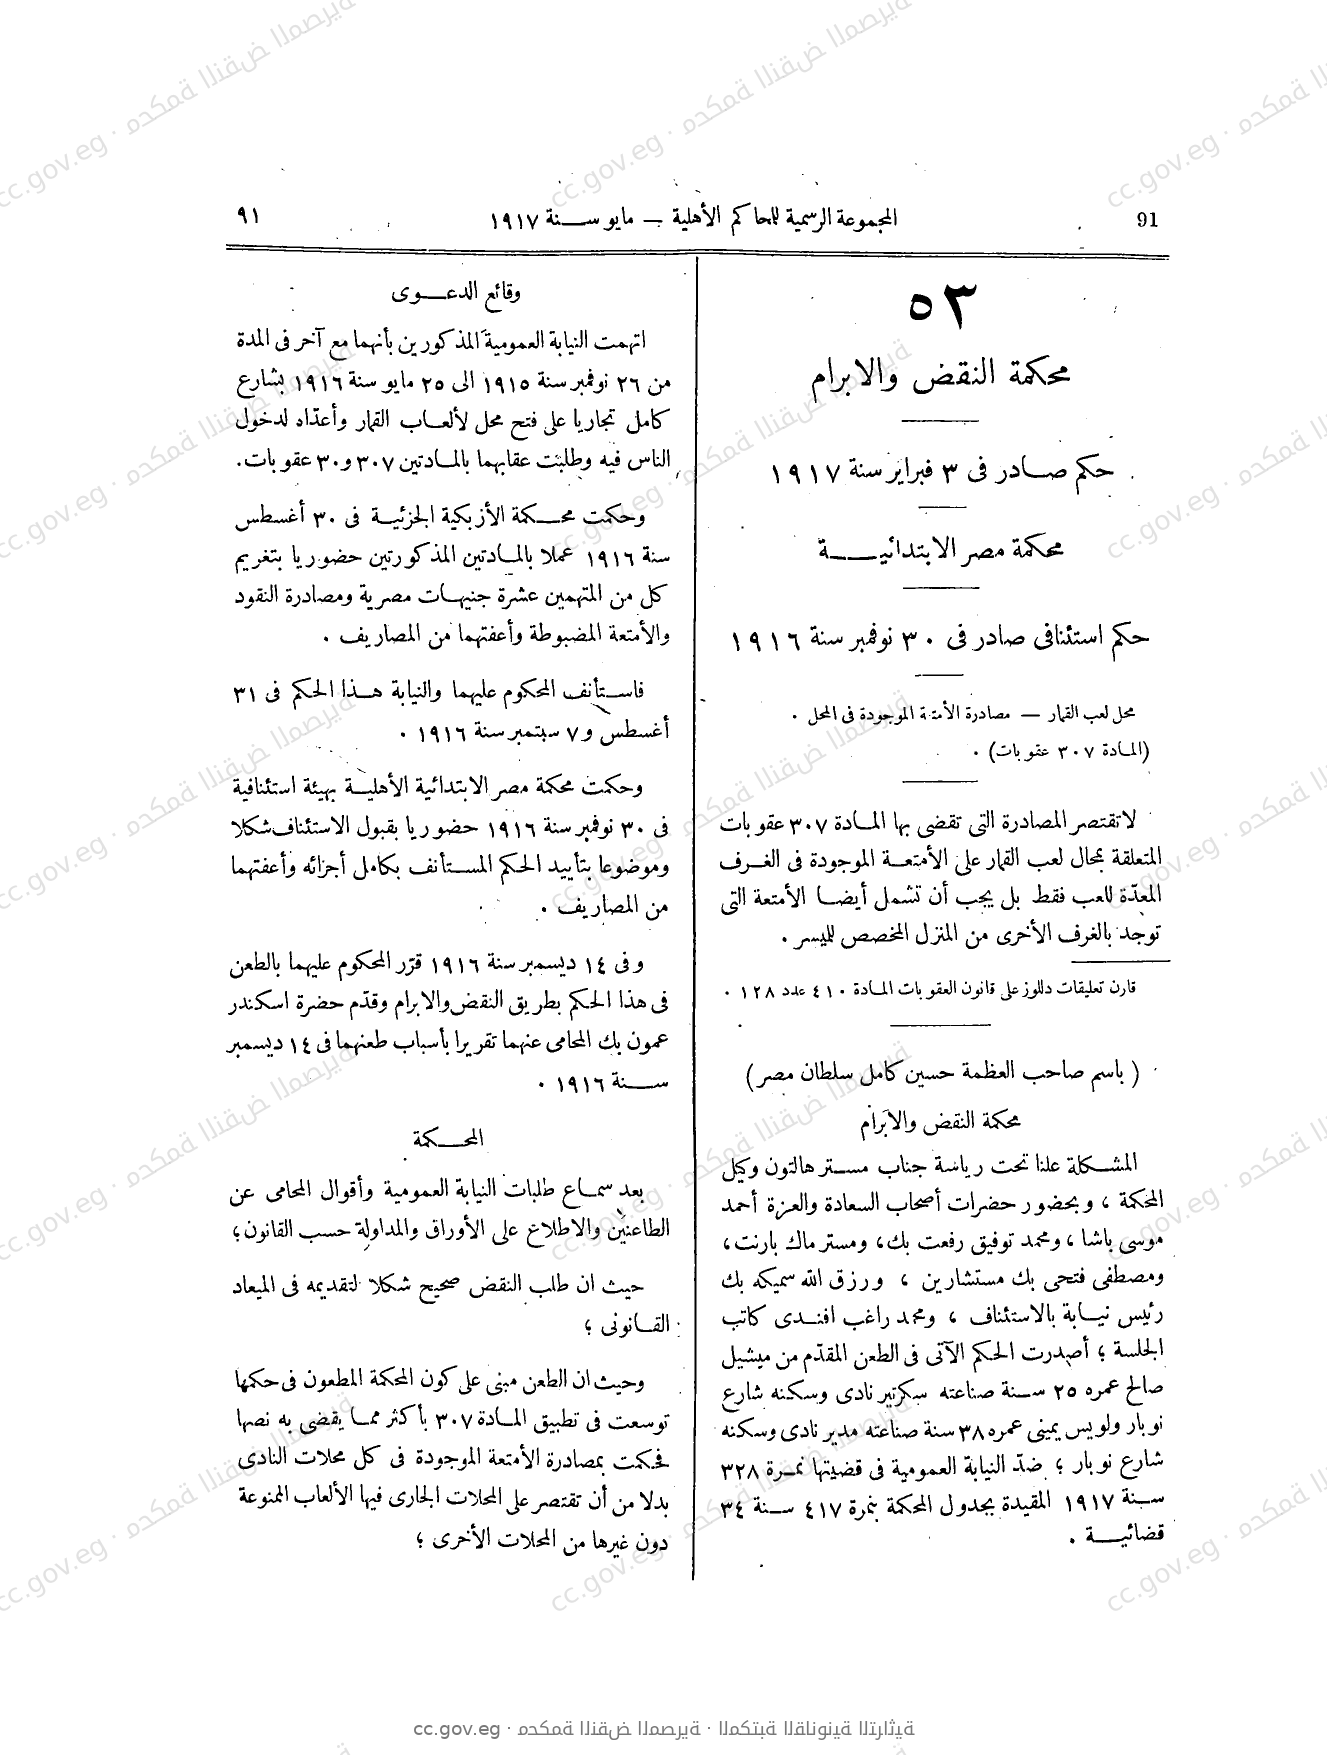 91
المجموعة الرسمية للمحاكم الأهلية — مايو سنة ١٩١٧
٩١
٥٣
محكمة النقض والابرام
حكم صادر فى ٣ فبراير سنة ١٩١٧
محكمة مصر الابتدائية
حكم استئنافى صادر فى ٣٠ نوفمبر سنة ١٩١٦
محل لعب القمار — مصادرة الأمتعة الموجودة فى المحل .
(المادة ٣٠٧ عقوبات) .
لا تقتصر المصادرة التى تقضى بها المادة ٣٠٧ عقوبات
المتعلقة بمحال لعب القمار على الأمتعة الموجودة فى الغرف
المعدّة للعب فقط بل يجب أن تشمل أيضا الأمتعة التى
توجد بالغرف الأخرى من المنزل المخصص لليسر .
قارن تعليقات دللوز على قانون العقوبات المادة ٤١٠ عدد ١٢٨ .
( باسم صاحب العظمة حسين كامل سلطان مصر )
محكمة النقض والابرام
المشكلة علنا تحت رياسة جناب مستر هالتون وكيل
المحكمة ، وبحضور حضرات أصحاب السعادة والعزة أحمد
موسى باشا ، ومحمد توفيق رفعت بك ، ومستر ماك بارنت ،
ومصطفى فتحى بك مستشارين ، ورزق الله سميكه بك
رئيس نيابة بالاستئناف ، ومحمد راغب افندى كاتب
الجلسة ؛ أصدرت الحكم الآتى فى الطعن المقدّم من ميشيل
صالح عمره ٢٥ سنة صناعته سكرتير نادى وسكنه شارع
نوبار ولويس يمينى عمره ٣٨ سنة صناعته مدير نادى وسكنه
شارع نوبار ؛ ضدّ النيابة العمومية فى قضيتها نمرة ٣٢٨
سنة ١٩١٧ المقيدة بجدول المحكمة بنمرة ٤١٧ سنة ٣٤
قضائية .
وقائع الدعوى
اتهمت النيابة العمومية المذكورين بأنهما مع آخر فى المدة
من ٢٦ نوفمبر سنة ١٩١٥ الى ٢٥ مايو سنة ١٩١٦ بشارع
كامل تجاريا على فتح محل لألعاب القمار وأعدّاه لدخول
الناس فيه وطلبت عقابهما بالمادتين ٣٠٧ و ٣٠ عقوبات .
وحكمت محكمة الأزبكية الجزئية فى ٣٠ أغسطس
سنة ١٩١٦ عملا بالمادتين المذكورتين حضوريا بتغريم
كل من المتهمين عشرة جنيهات مصرية ومصادرة النقود
والأمتعة المضبوطة وأعفتهما من المصاريف .
فاستأنف المحكوم عليهما والنيابة هذا الحكم فى ٣١
أغسطس و ٧ سبتمبر سنة ١٩١٦ .
وحكمت محكمة مصر الابتدائية الأهلية بهيئة استئنافية
فى ٣٠ نوفمبر سنة ١٩١٦ حضوريا بقبول الاستئناف شكلا
وموضوعا بتأييد الحكم المستأنف بكامل أجزائه وأعفتهما
من المصاريف .
وفى ١٤ ديسمبر سنة ١٩١٦ قرّر المحكوم عليهما بالطعن
فى هذا الحكم بطريق النقض والابرام وقدّم حضرة اسكندر
عمون بك المحامى عنهما تقريرا بأسباب طعنهما فى ١٤ ديسمبر
سنة ١٩١٦ .
المحكمة
بعد سماع طلبات النيابة العمومية وأقوال المحامى عن
الطاعنين والاطلاع على الأوراق والمداولة حسب القانون ؛
حيث ان طلب النقض صحيح شكلا لتقديمه فى الميعاد
القانونى ؛
وحيث ان الطعن مبنى على كون المحكمة المطعون فى حكمها
توسعت فى تطبيق المادة ٣٠٧ بأكثر مما يقضى به نصها
فحكمت بمصادرة الأمتعة الموجودة فى كل محلات النادى
بدلا من أن تقتصر على المحلات الجارى فيها الألعاب الممنوعة
دون غيرها من المحلات الأخرى ؛
cc.gov.eg · محكمة النقض المصرية · المكتبة القانونية التراثية